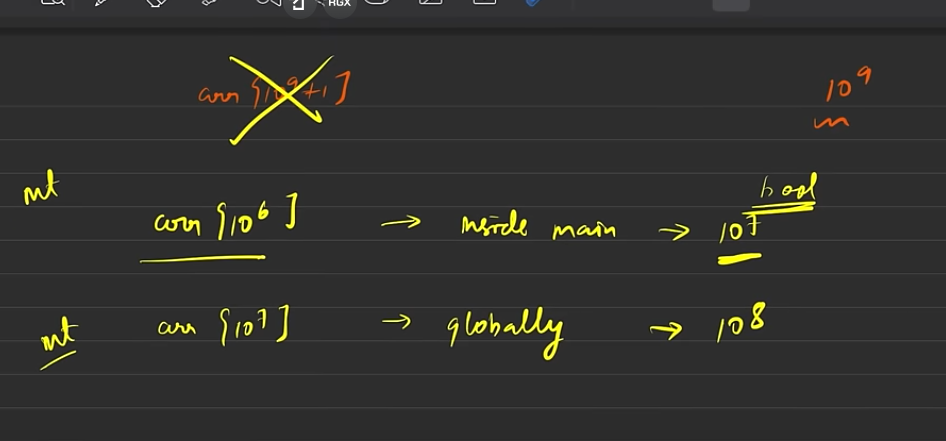 HGX
arr [10⁹+1]
10⁹
int arr [10⁶] → inside main → 10⁷ bool
int arr [10⁷] → globally → 10⁸